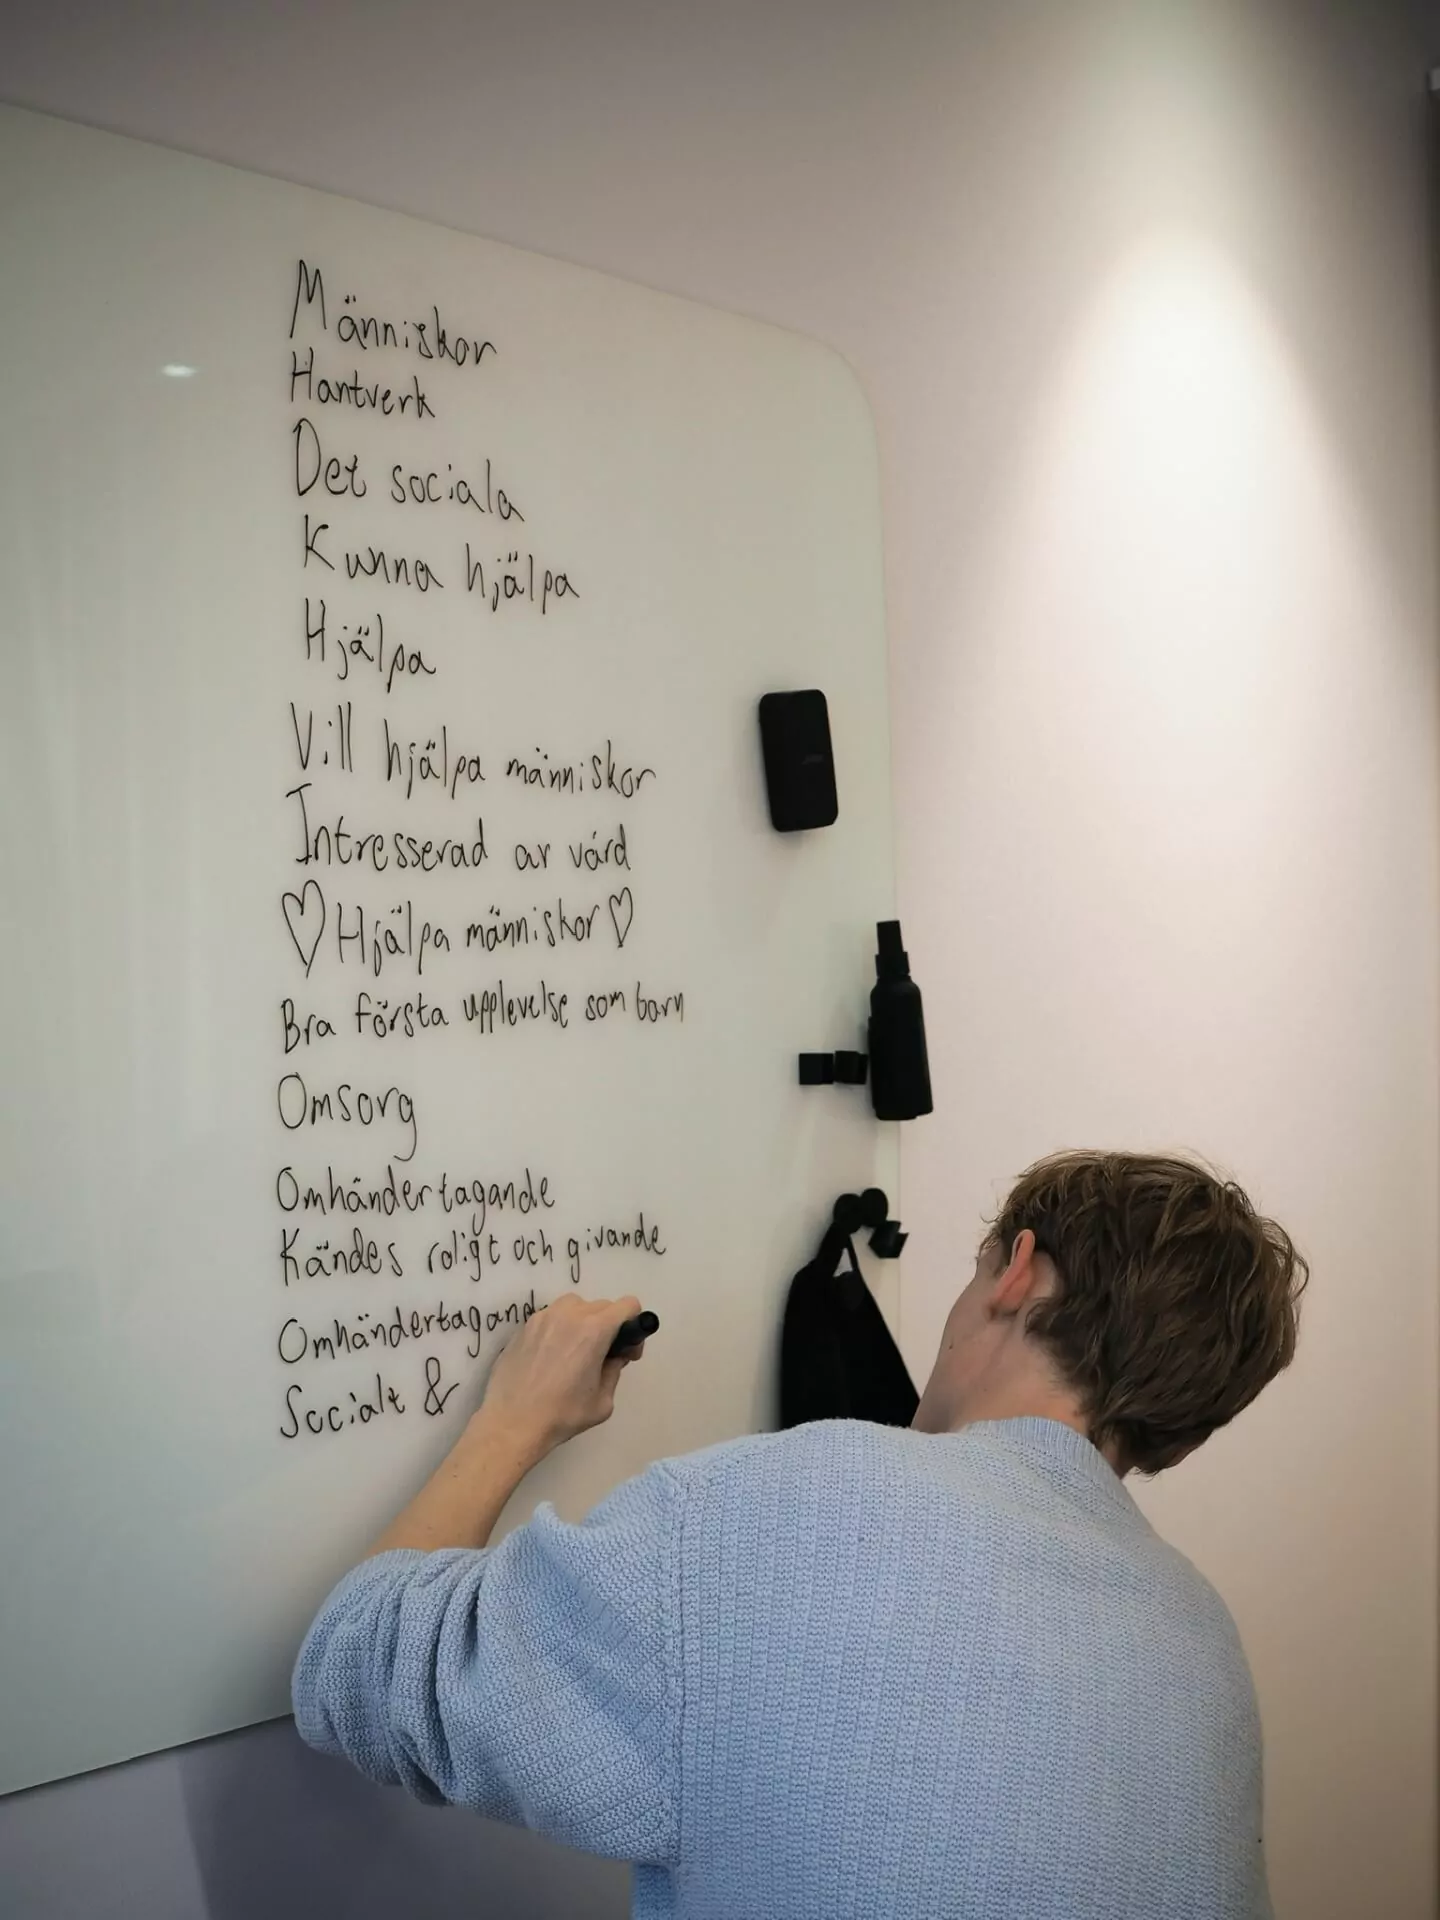 Människor
Hantverk
Det sociala
Kunna hjälpa
Hjälpa
Vill hjälpa människor
Intresserad av vård
♡ Hjälpa människor ♡
Bra första upplevelse som barn
Omsorg
Omhändertagande
Kändes roligt och givande
Omhändertagand
Socialt &